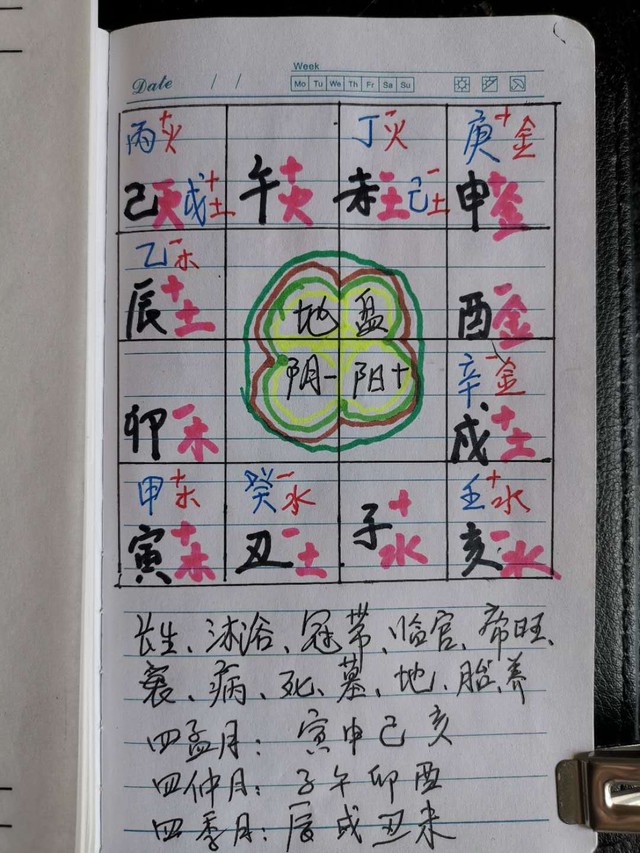 Week
Date / /
Mo Tu We Th Fr Sa Su
丙+火 丁-火 庚+金
己火 戊+土 午+火 未-土 己-土 申+金
乙-木
辰+土 地盘 酉-金
阴- 阳+ 辛-金
卯-木 戌+土
甲+木 癸-水 壬+水
寅+木 丑-土 子+水 亥-水
长生、沐浴、冠带、临官、帝旺、
衰、病、死、墓、地、胎、养
四孟月：寅申己亥
四仲月：子午卯酉
四季月：辰戌丑未